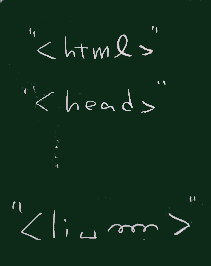 "<html>"
"<head>"
⋮
"<li␣ >"